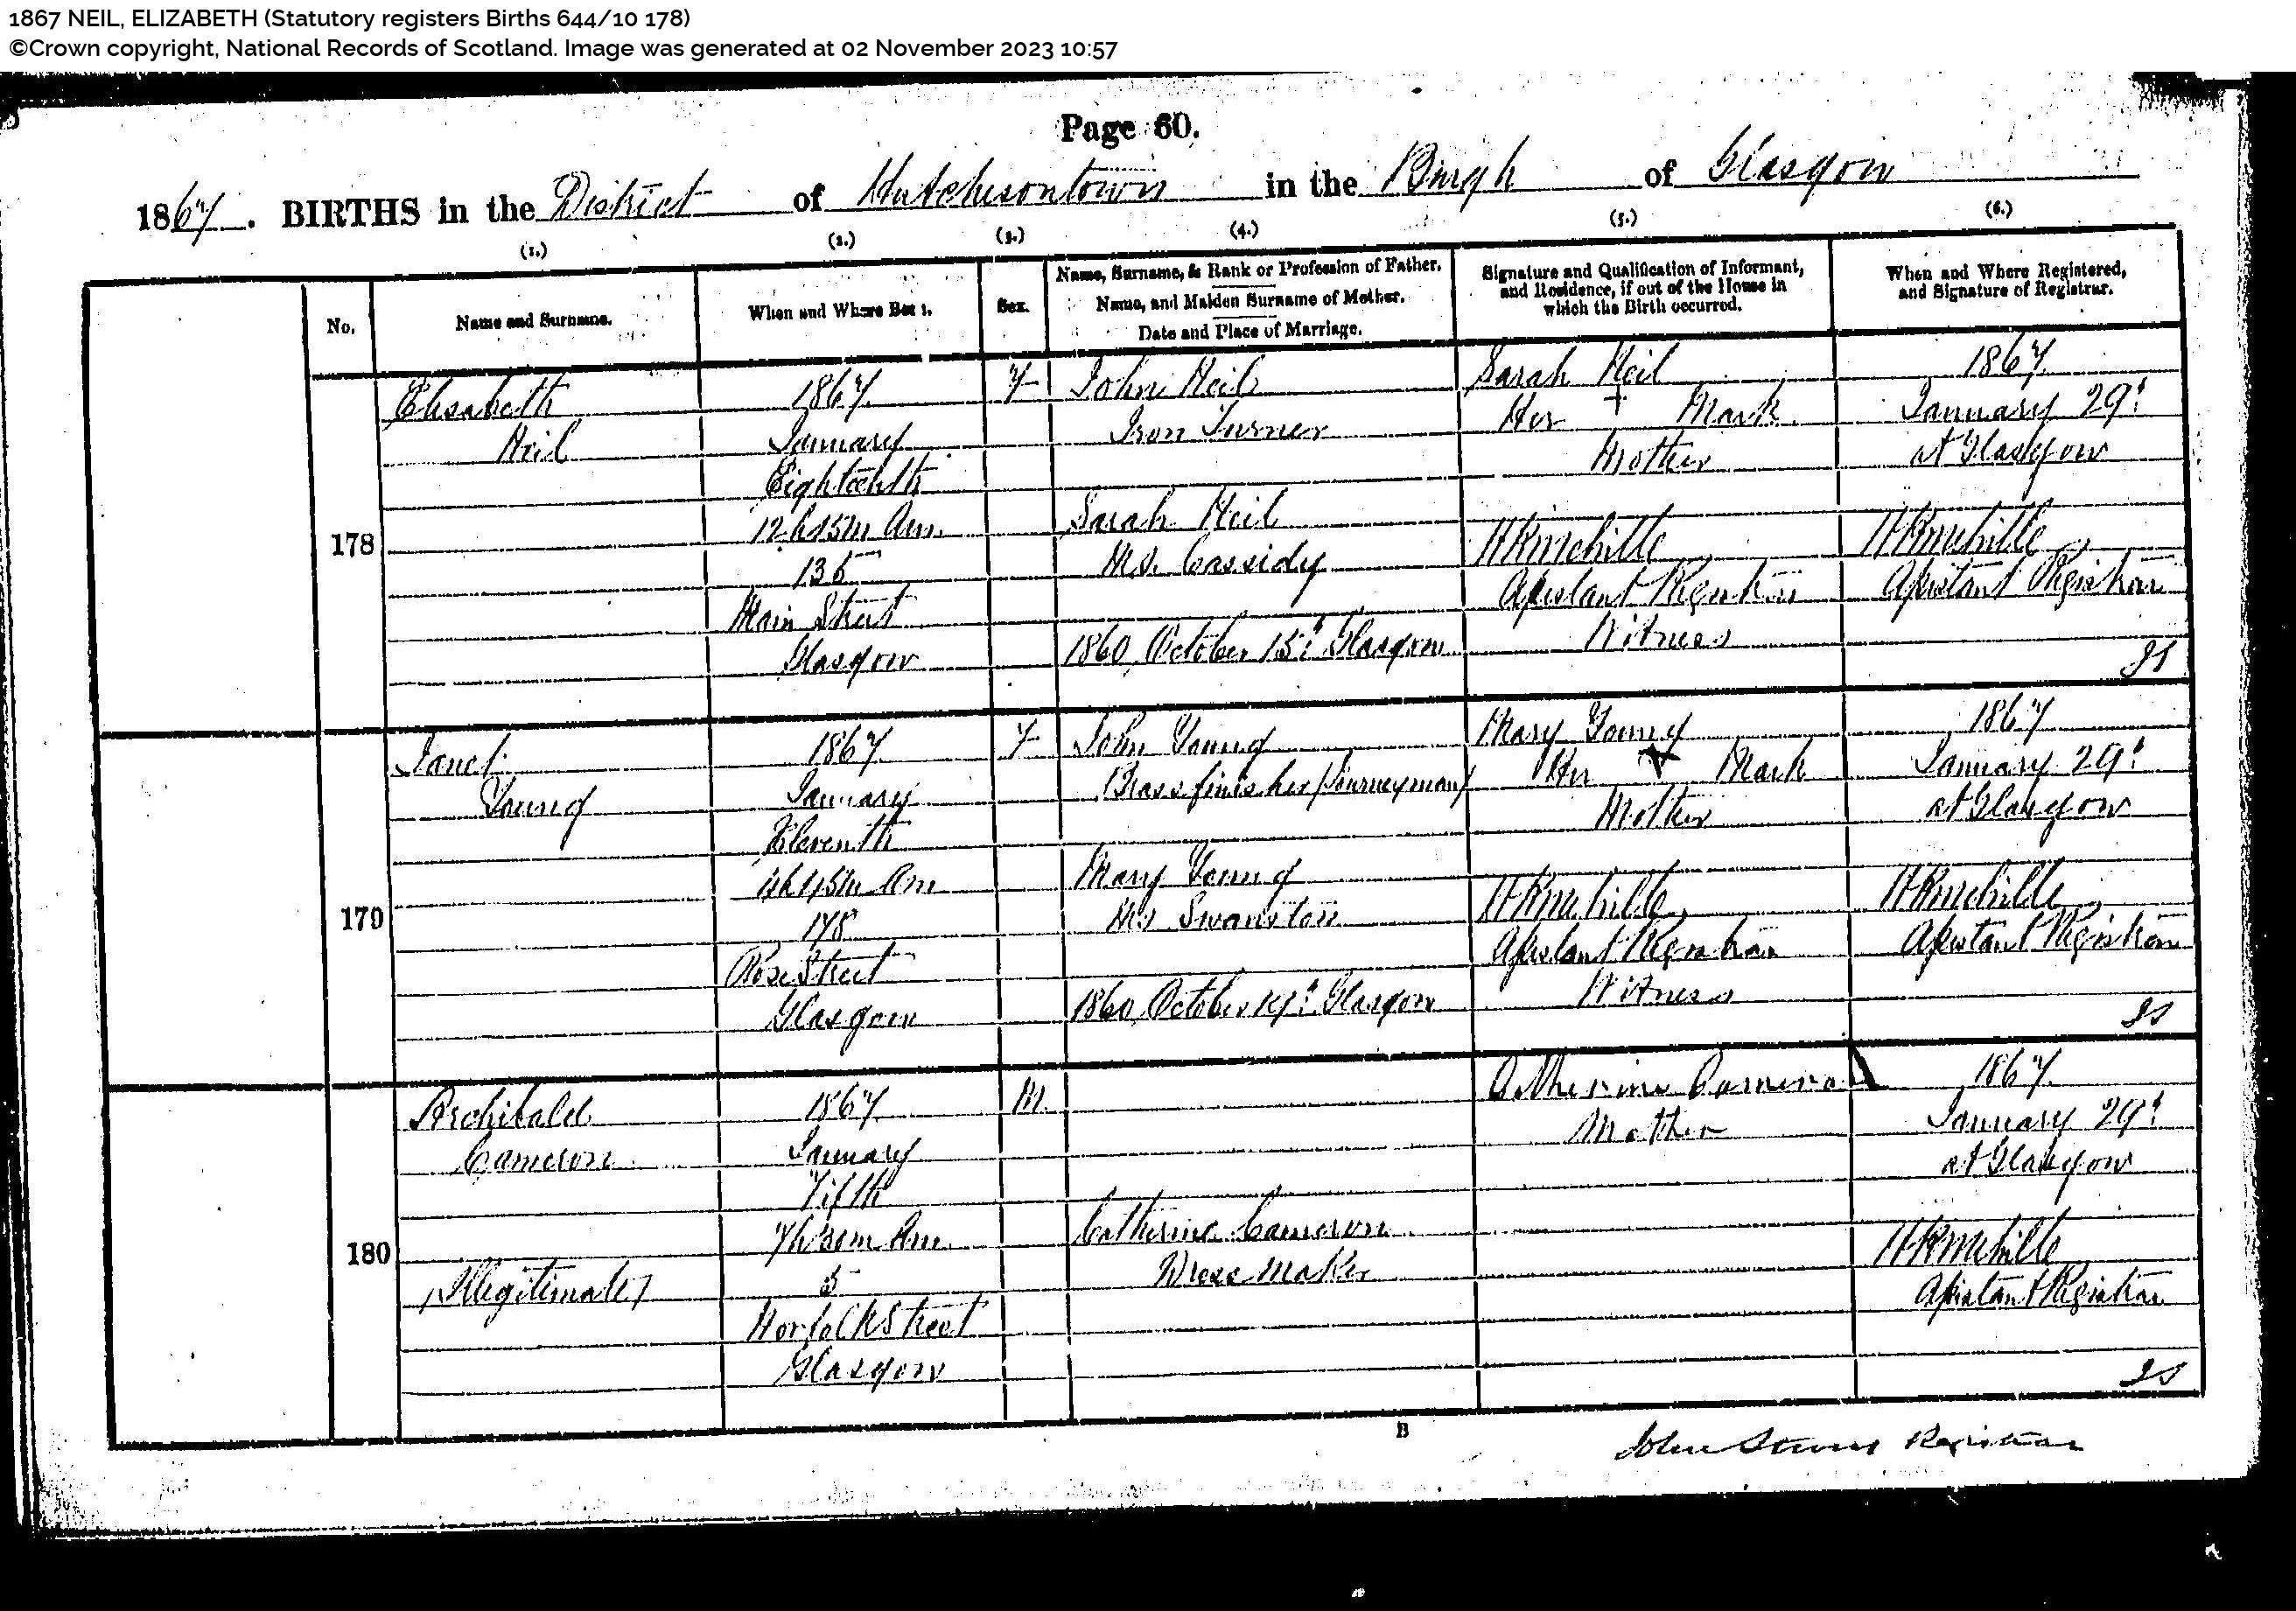 1867 NEIL, ELIZABETH (Statutory registers Births 644/10 178)
©Crown copyright, National Records of Scotland. Image was generated at 02 November 2023 10:57
Page 60.
1867. BIRTHS in the District of Hutchesontown in the Burgh of Glasgow
(1.) (2.) (3.) (4.) (5.) (6.)
No.
Name and Surname.
When and Where Born.
Sex.
Name, Surname, & Rank or Profession of Father.
Name, and Maiden Surname of Mother.
Date and Place of Marriage.
Signature and Qualification of Informant,
and Residence, if out of the House in
which the Birth occurred.
When and Where Registered,
and Signature of Registrar.
178
Elisabeth
Neil
1867
January
Eighteenth
12h 15m Am.
135
Main Street
Glasgow
F
John Neil
Iron Turner
Sarah Neil
M.S. Cassidy
1860, October 15th Glasgow
Sarah Neil
Her + Mark
Mother
Assistant Registrar
Witness
1867
January 29th
at Glasgow
Assistant Registrar
JS
179
Janet
Young
1867
January
Eleventh
4h 45m Am
178
Rose Street
Glasgow
F
John Young
Brassfinisher (Journeyman)
Mary Young
MS Swanston
1860, October 19th Glasgow
Mary Young
Her X Mark
Mother
Assistant Registrar
Witness
1867
January 29th
at Glasgow
Assistant Registrar
JS
180
Archibald
Cameron
(Illegitimate)
1867
January
Fifth
7h 30m Am.
5
Norfolk Street
Glasgow
M.
Catherine Cameron
Dress Maker
Catherine Cameron
Mother
1867
January 29th
at Glasgow
Assistant Registrar
JS
B
John Registrar